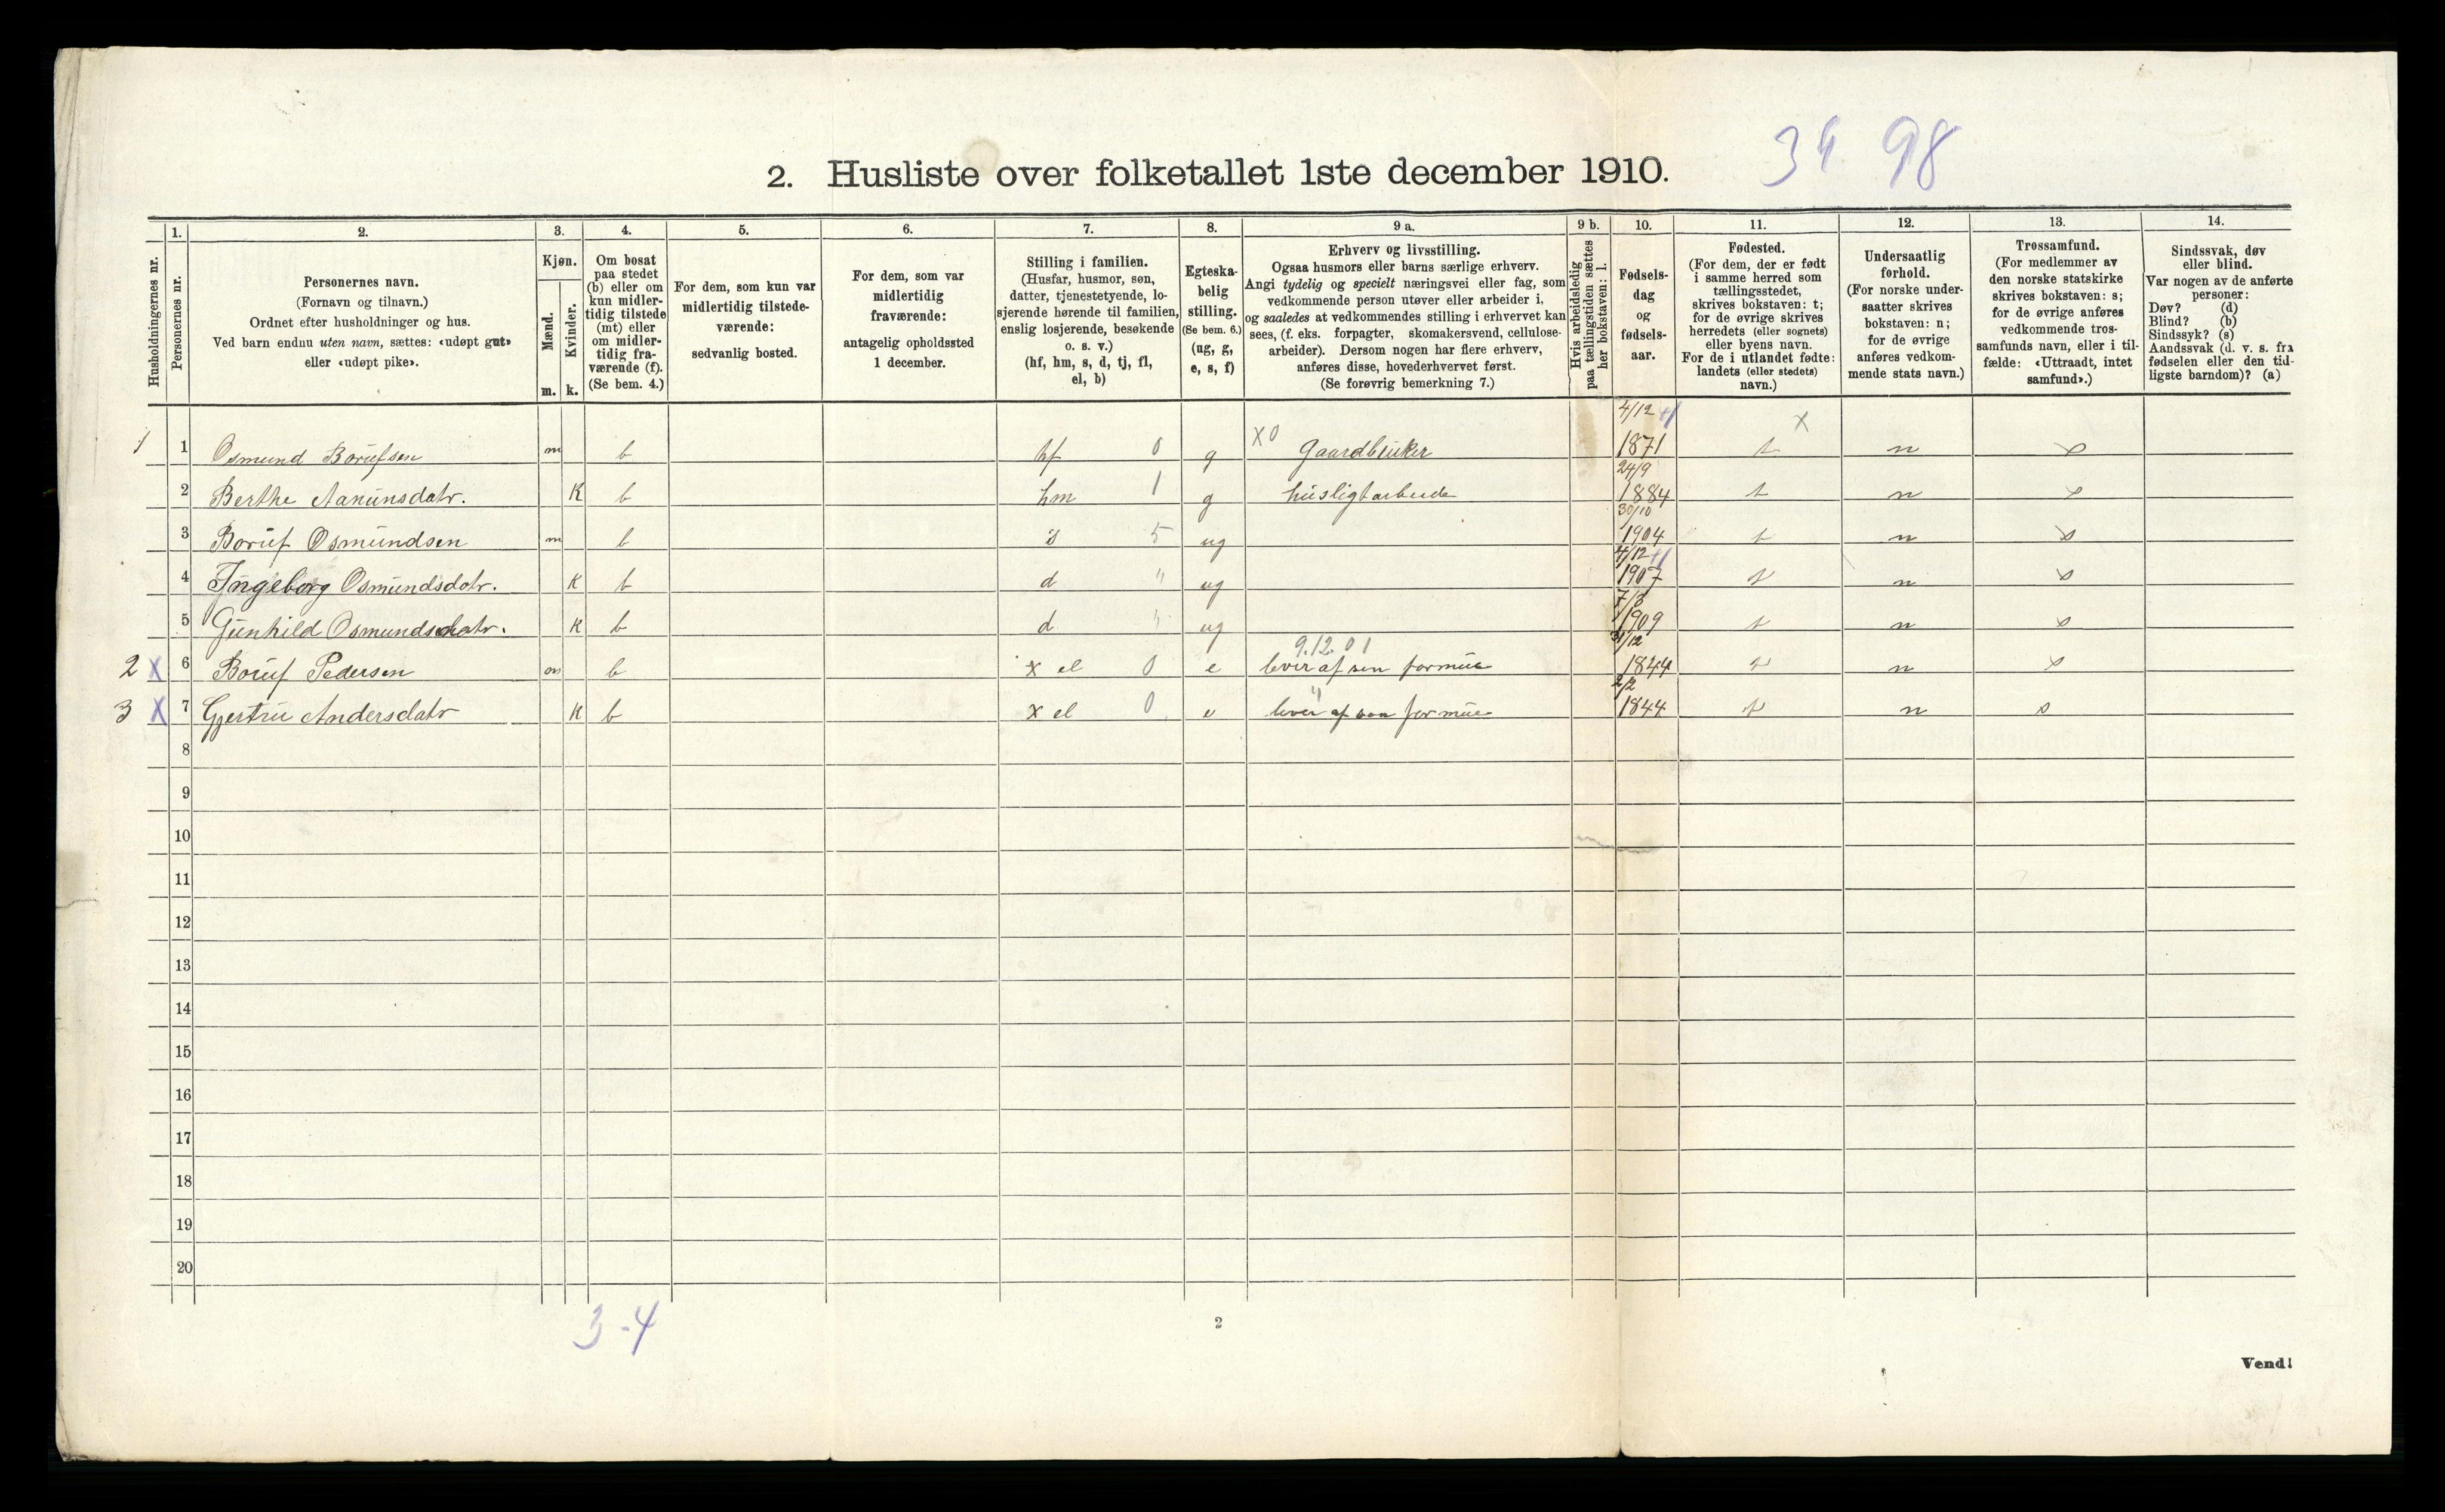 34 98
2. Husliste over folketallet 1ste december 1910.
1. 2. 3. 4. 5. 6. 7. 8. 9 a. 9 b. 10. 11. 12. 13. 14.
Husholdningernes nr.
Personernes nr.
Personernes navn.
(Fornavn og tilnavn.)
Ordnet efter husholdninger og hus.
Ved barn endnu uten navn, sættes: «udøpt gut»
eller «udøpt pike».
Kjøn.
Mænd.
Kvinder.
m. k.
Om bosat
paa stedet
(b) eller om
kun midler-
tidig tilstede
(mt) eller
om midler-
tidig fra-
værende (f).
(Se bem. 4.)
For dem, som kun var
midlertidig tilstede-
værende:
sedvanlig bosted.
For dem, som var
midlertidig
fraværende:
antagelig opholdssted
1 december.
Stilling i familien.
(Husfar, husmor, søn,
datter, tjenestetyende, lo-
sjerende hørende til familien,
enslig losjerende, besøkende
o. s. v.)
(hf, hm, s, d, tj, fl,
el, b)
Egteska-
belig
stilling.
(Se bem. 6.)
(ug, g,
e, s, f)
Erhverv og livsstilling.
Ogsaa husmors eller barns særlige erhverv.
Angi tydelig og specielt næringsvei eller fag, som
vedkommende person utøver eller arbeider i,
og saaledes at vedkommendes stilling i erhvervet kan
sees, (f. eks. forpagter, skomakersvend, cellulose-
arbeider). Dersom nogen har flere erhverv,
anføres disse, hovederhvervet først.
(Se forøvrig bemerkning 7.)
Hvis arbeidsledig
paa tællingstiden sættes
her bokstaven: l.
Fødsels-
dag
og
fødsels-
aar.
Fødested.
(For dem, der er født
i samme herred som
tællingsstedet,
skrives bokstaven: t;
for de øvrige skrives
herredets (eller sognets)
eller byens navn.
For de i utlandet fødte:
landets (eller stedets)
navn.)
Undersaatlig
forhold.
(For norske under-
saatter skrives
bokstaven: n;
for de øvrige
anføres vedkom-
mende stats navn.)
Trossamfund.
(For medlemmer av
den norske statskirke
skrives bokstaven: s;
for de øvrige anføres
vedkommende tros-
samfunds navn, eller i til-
fælde: «Uttraadt, intet
samfund».)
Sindssvak, døv
eller blind.
Var nogen av de anførte
personer:
Døv? (d)
Blind? (b)
Sindssyk? (s)
Aandssvak (d. v. s. fra
fødselen eller den tid-
ligste barndom)? (a)
4/12 x
1 1 Osmund Borufsen m b hf 0 g x0 gaardbruker 1871 t n s
24/9
2 Berthe Aanunsdatr. K b hm 1 g husligtarbeide 1884 t n s
30/10
3 Boruf Osmundsen m b s 5 ug 1904 t n s
4/12
4 Ingeborg Osmundsdatr. K b d " ug 1907 t n s
7/8
5 Gunhild Osmundsdatr. K b d " ug 1909 t n s
9.12.01 31/12
2 x 6 Boruf Pedersen m b x el 0 e lever af sen formue 1844 t n s
" 2/2
3 x 7 Gjertru Andersdatr K b x el 0 e lever af formue 1844 t n s
8
9
10
11
12
13
14
15
16
17
18
19
20
3-4
2
Vend!